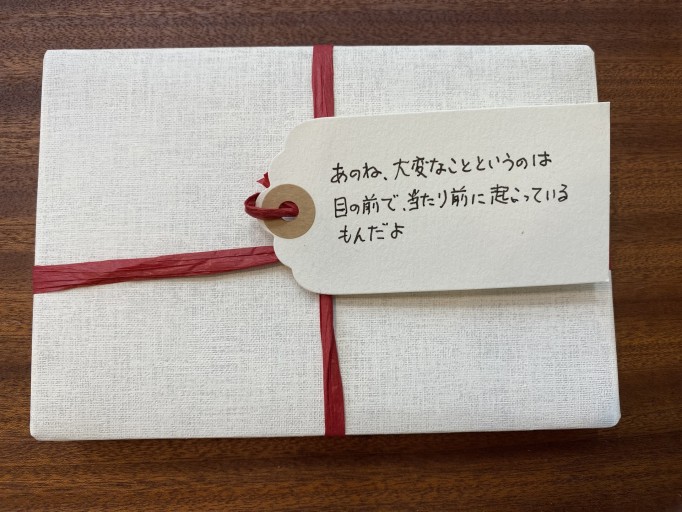 あのね、大変なことというのは
目の前で、当たり前に起こっている
もんだよ